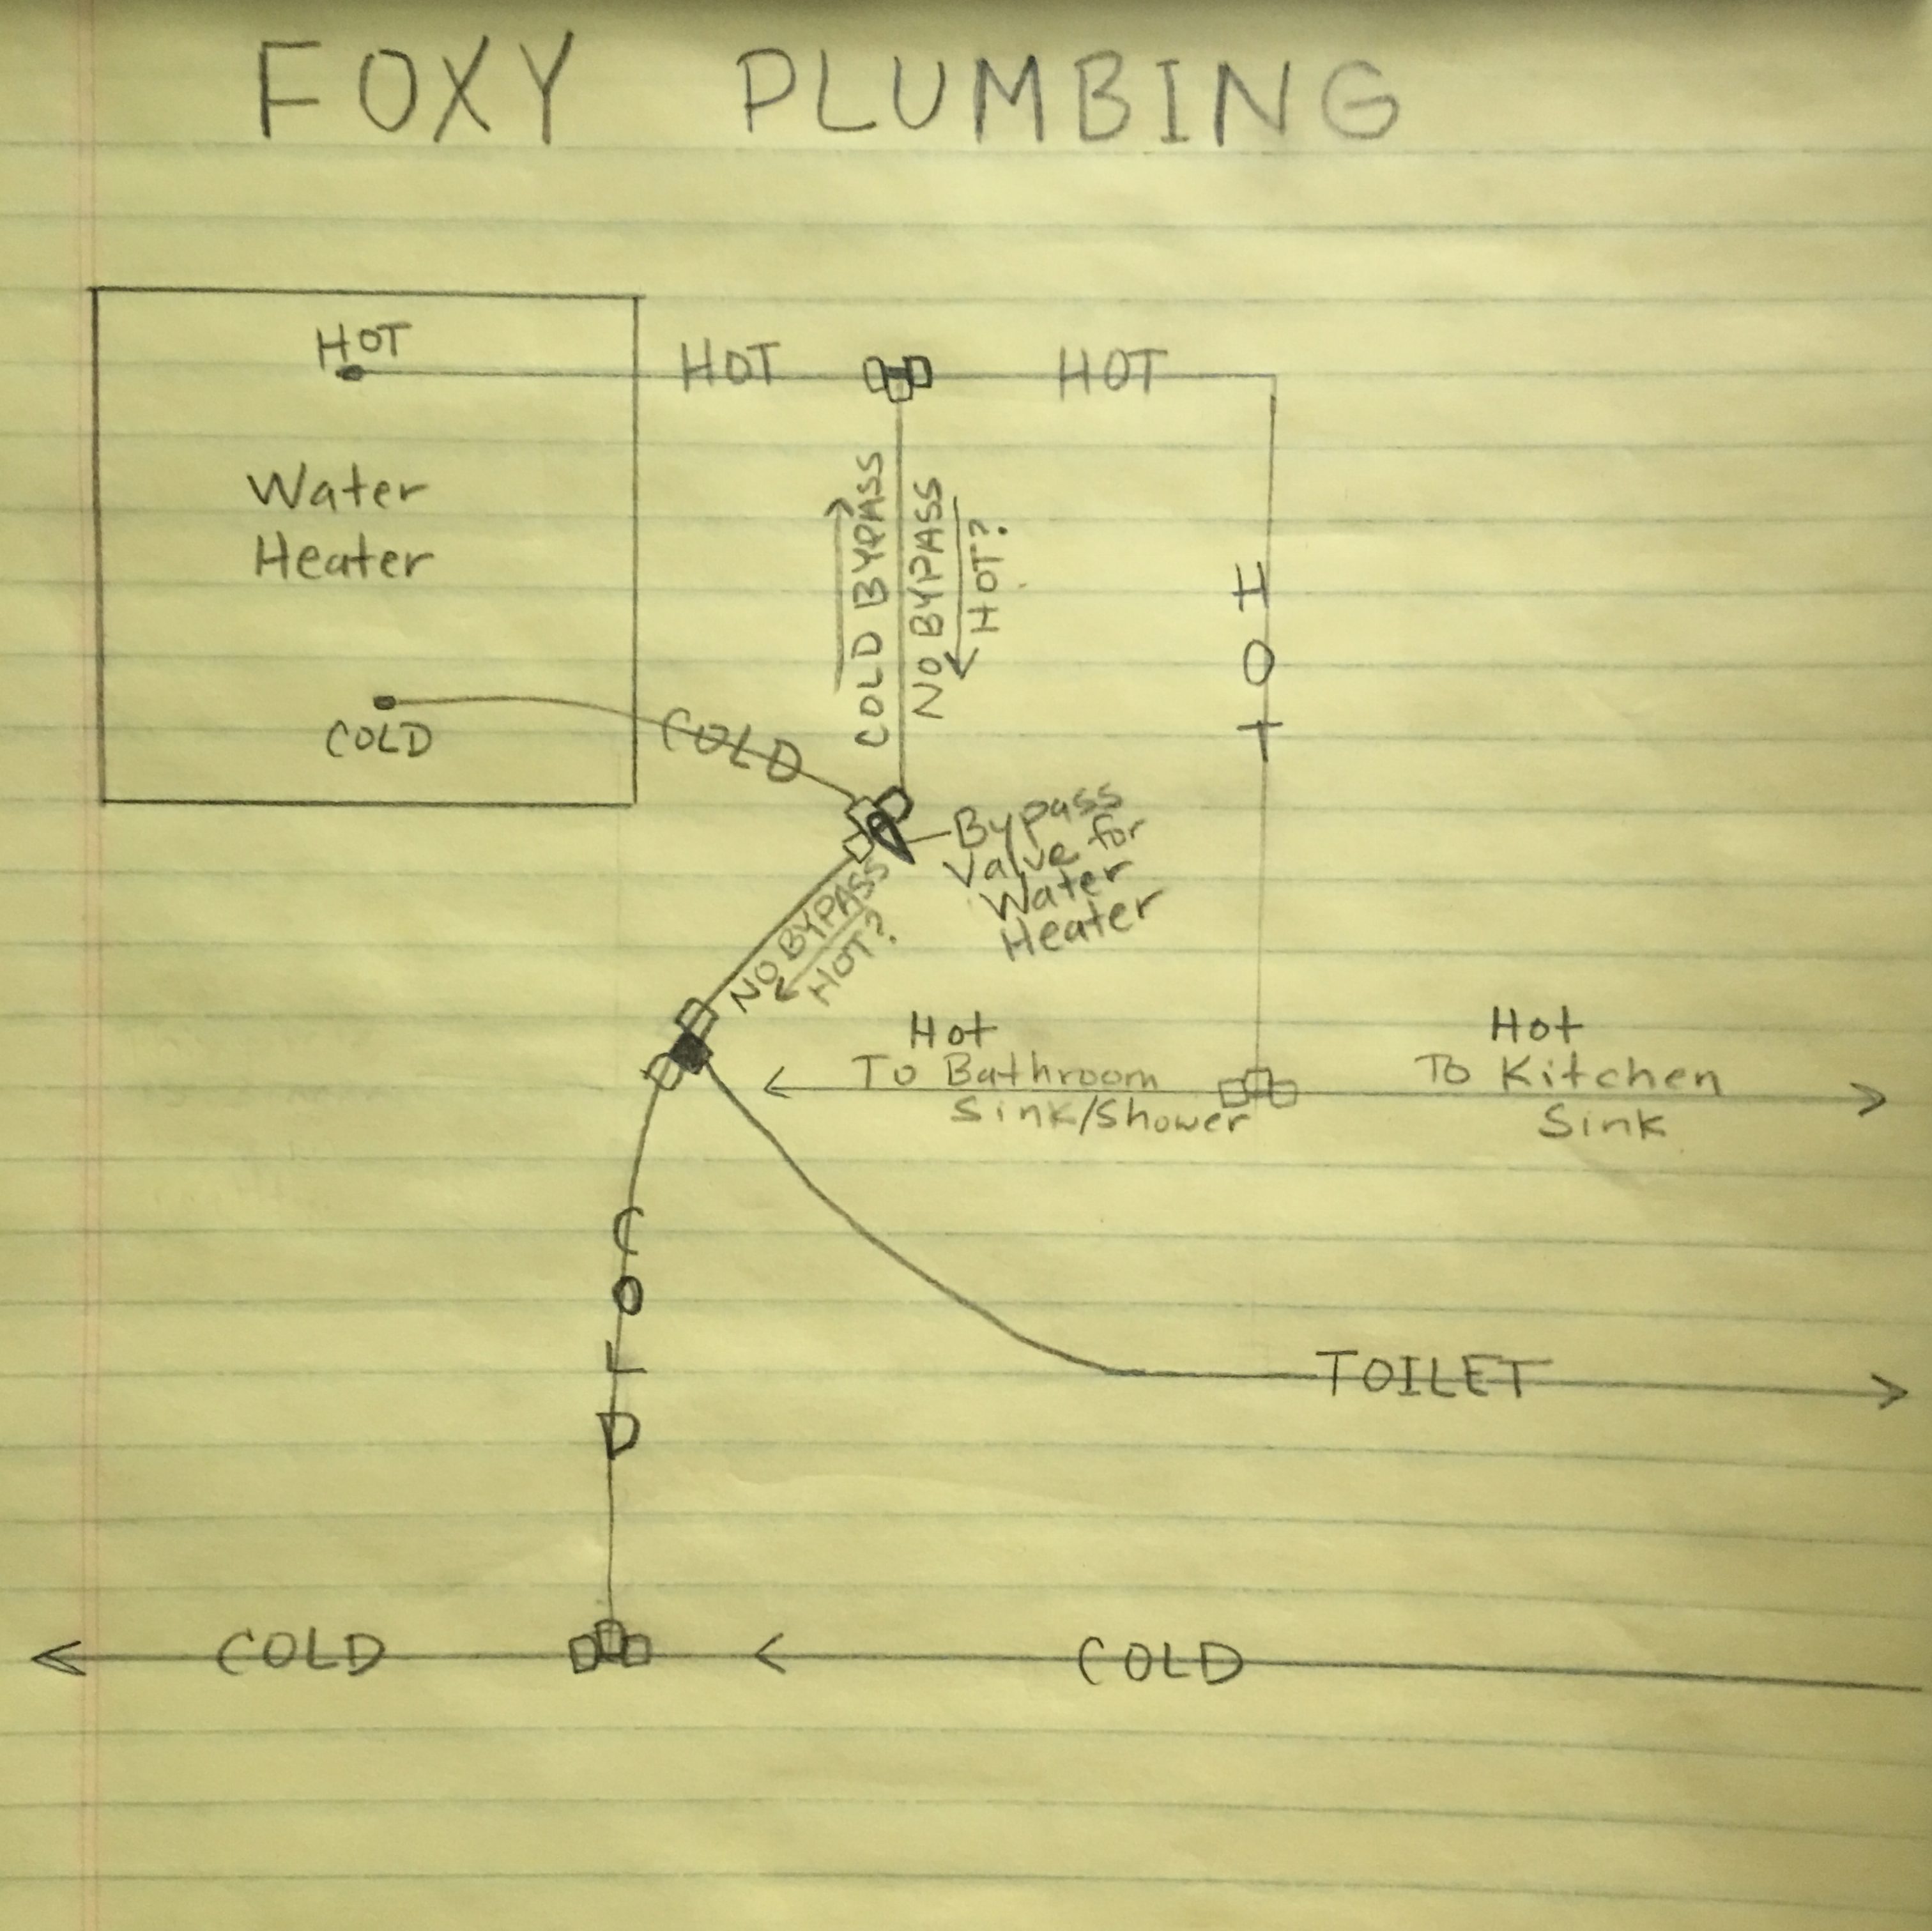 FOXY PLUMBING
HOT
HOT
HOT
Water
Heater
COLD BYPASS
NO BYPASS
HOT?
HOT
COLD
COLD
Bypass
Valve for
Water
Heater
NO BYPASS
HOT?
Hot
To Bathroom
Sink/Shower
Hot
To Kitchen
Sink
COLD
TOILET
COLD
COLD